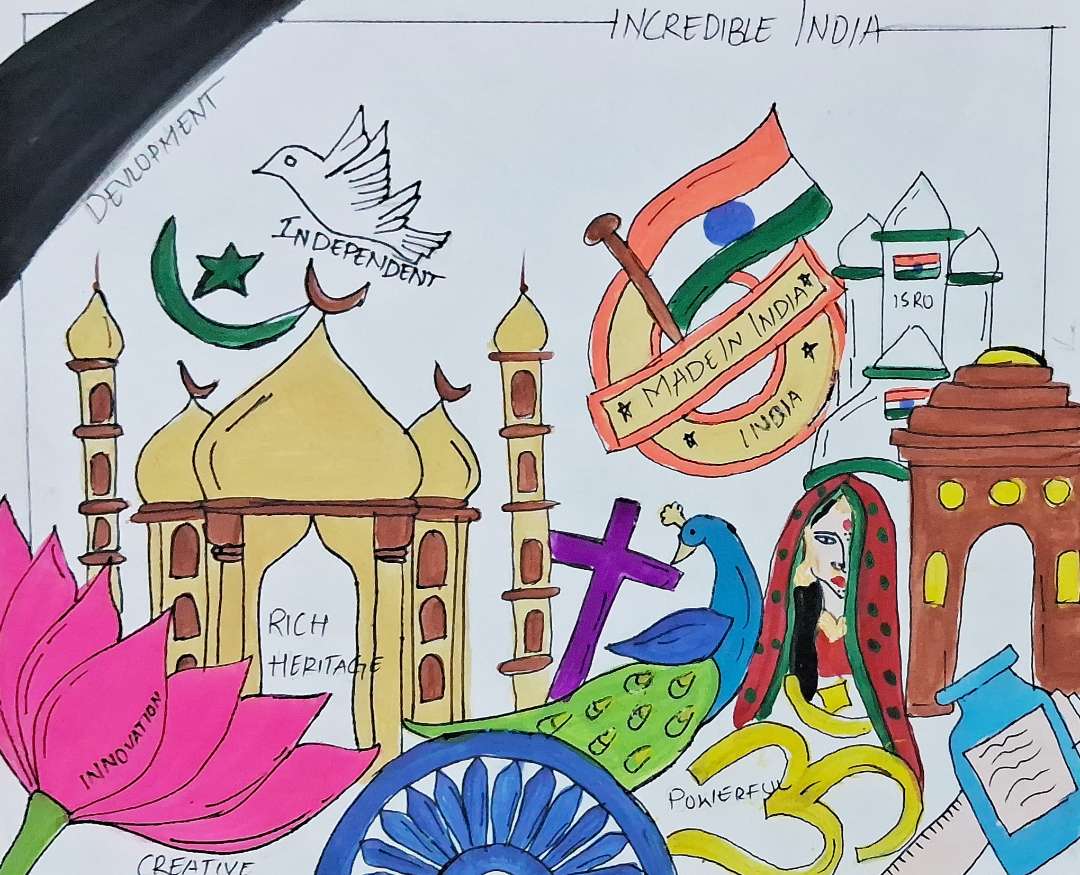 INCREDIBLE INDIA
DEVLOPMENT
INDEPENDENT
MADE IN INDIA
INDIA
ISRO
RICH
HERITAGE
INNOVATION
POWERFUL
CREATIVE